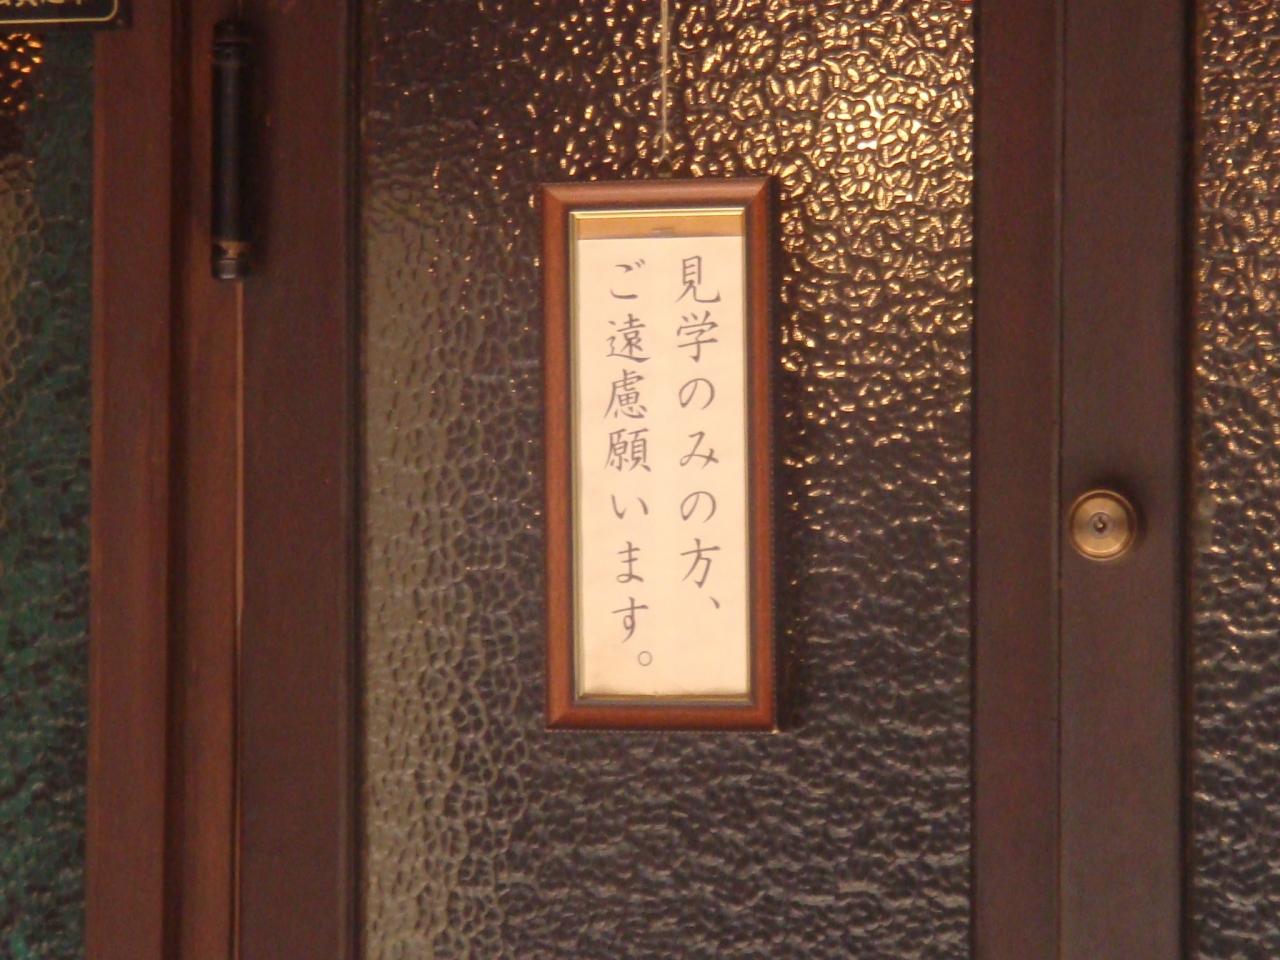 見学のみの方、
ご遠慮願います。